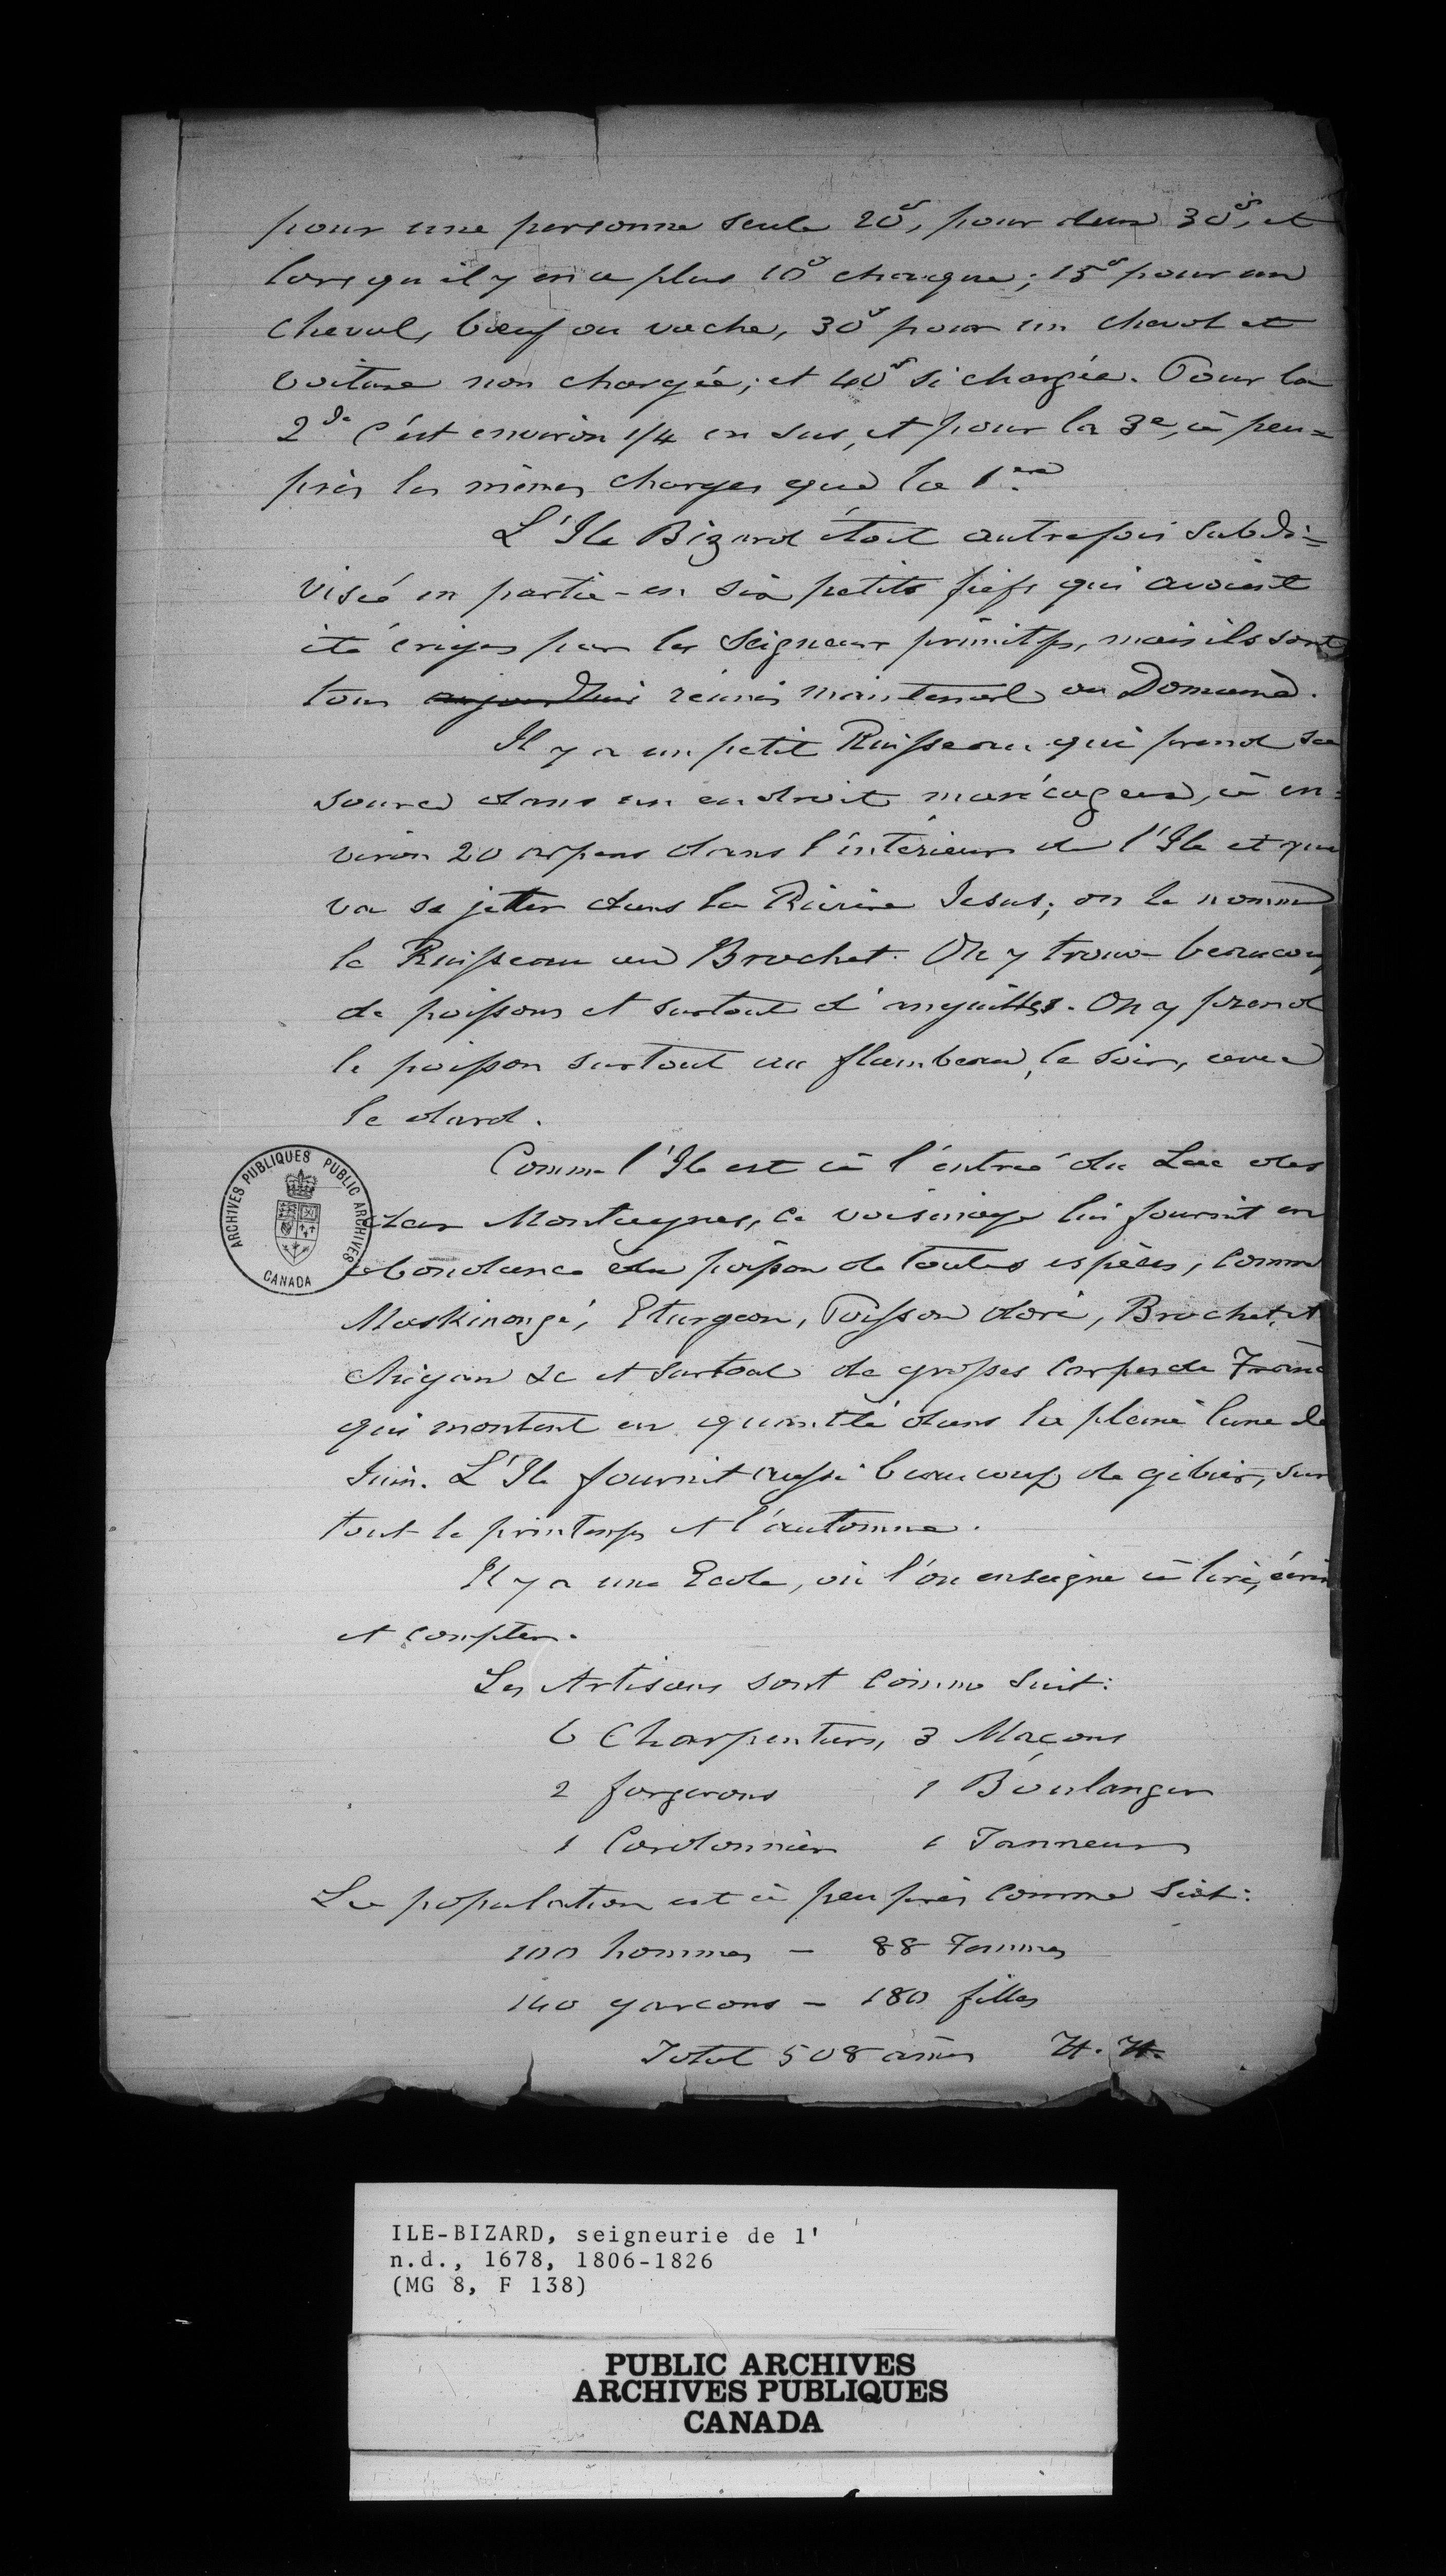 pour une personne seule 20s, pour deux 30s, et
lorsqu'il y en a plus 10s chaque; 15s pour un
cheval, bœuf ou vache, 30s pour un cheval et
voiture non chargée; et 40s si chargée. Pour la
2de c'est environ 1/4 en sus, et pour la 3e, à peu=
près les mêmes charges que la 1ere
L'Ile Bizard étoit autrefois subdi=
visée en partie en six petits fiefs qui avoient
été érigés par les Seigneurs primitifs, mais ils sont
tous aujourd'hui réunis maintenant au Domaine.
Il y a un petit Ruisseau qui prend sa
source dans un endroit marécageux, à en=
viron 20 arpens dans l'intérieur de l'Ile et qui
va se jetter dans la Rivière Jesus; on le nomme
le Ruisseau au Brochet. On y trouve beaucoup
de poissons et surtout d'anguilles. On y prend
le poisson surtout au flambeau, le soir, avec
le dard.
Comme l'Ile est à l'entrée du Lac des
deux Montagnes, ce voisinage lui fournit en
abondance du poisson de toutes espèces, comme
Maskinongé, Eturgeon, Poisson doré, Brochet, et
Achigan &c et surtout de grosses Carpes de France
qui montent en quantité dans la pleine lune de
Juin. L'Ile fournit aussi beaucoup de gibier, sur
tout le printemps et l'automne.
Il y a une Ecole, où l'on enseigne à lire, écrire
et compter.
Les Artisans sont comme suit:
6 Charpentiers, 3 Maçons
2 forgerons 1 Boulanger
1 Cordonnier 1 Tanneur
La population est à peu près comme suit:
100 hommes - 88 Femmes
140 garcons - 180 filles
Total 508 âmes H. H.
ARCHIVES PUBLIQUES PUBLIC ARCHIVES
CANADA
ILE-BIZARD, seigneurie de l'
n.d., 1678, 1806-1826
(MG 8, F 138)
PUBLIC ARCHIVES
ARCHIVES PUBLIQUES
CANADA